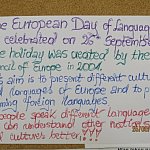 The European Day of Languages
celebrated on 26th September
he holiday was created by the
ncil of Europe in 2001
s aim is to present different cultur
d languages of Europe and to p
rning foreign languages.
people speak different languages
can understand other nations
d cultures better!!!